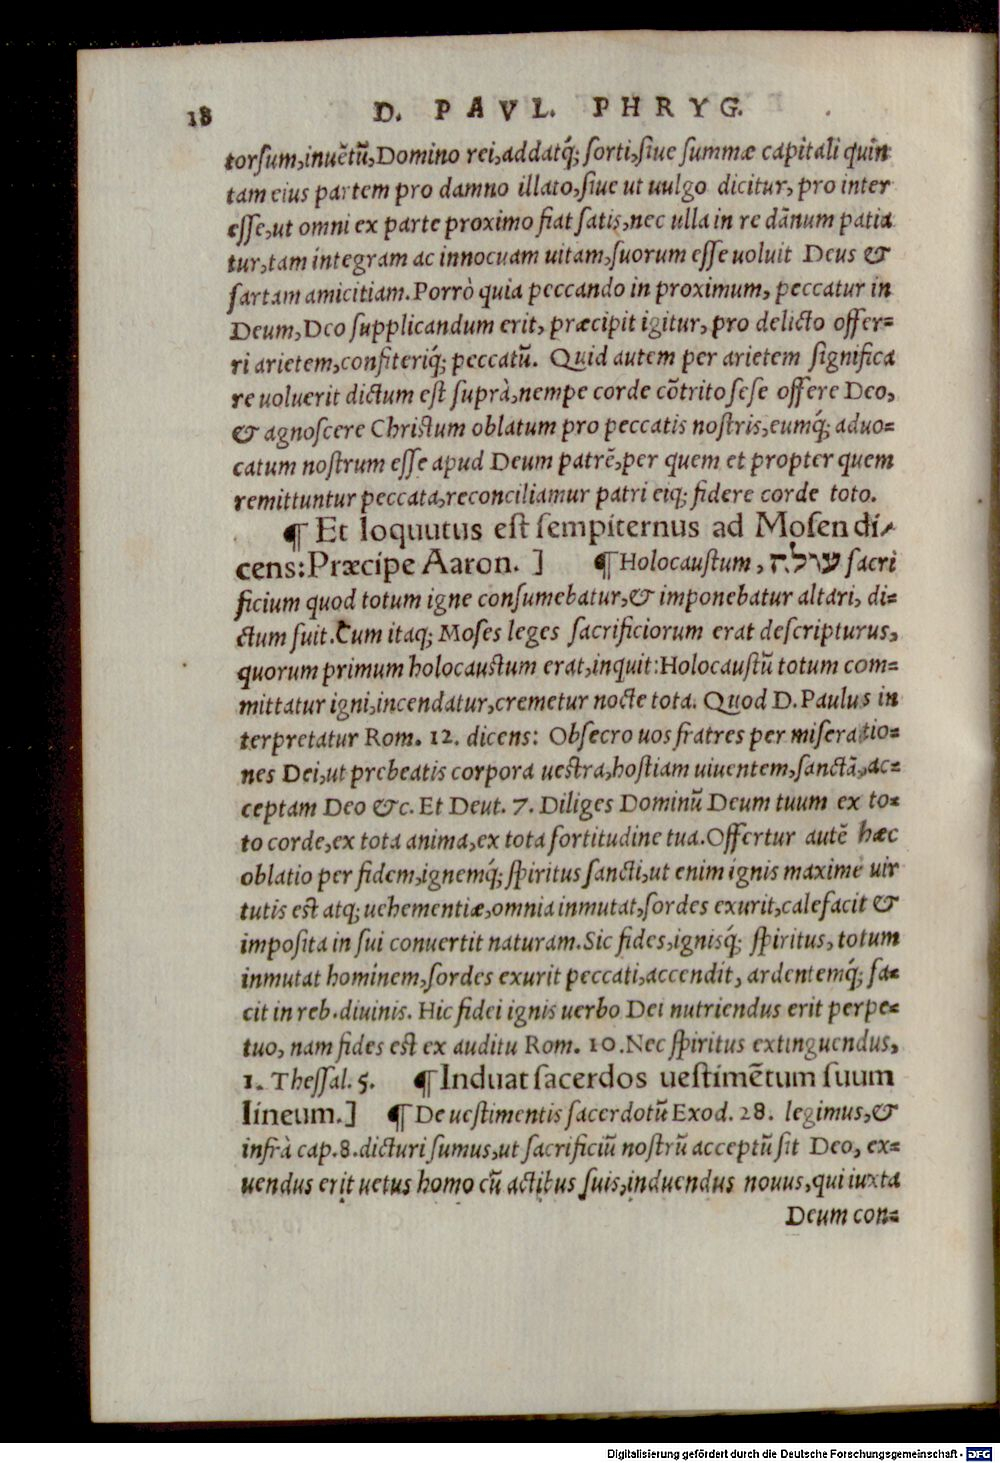 18 D. PAVL. PHRYG.
torsum, inuētū, Domino rei, addatq́; sorti, siue summæ capitali quin
tam eius partem pro damno illato, siue ut uulgo dicitur, pro inter
esse, ut omni ex parte proximo fiat satis, nec ulla in re dānum patia
tur, tam integram ac innocuam uitam, suorum esse uoluit Deus &
sartam amicitiam. Porrò quia peccando in proximum, peccatur in
Deum, Deo supplicandum erit, præcipit igitur, pro delicto offer=
ri arietem, confiteriq́; peccatū. Quid autem per arietem significa
re uoluerit dictum est suprà, nempe corde cōtrito sese offere Deo,
& agnoscere Christum oblatum pro peccatis nostris, eumq́; aduo=
catum nostrum esse apud Deum patrē, per quem et propter quem
remittuntur peccata, reconciliamur patri eiq; fidere corde toto.
¶ Et loquutus est sempiternus ad Mosen di⸗
cens: Præcipe Aaron. ] ¶ Holocaustum, עולה sacri
ficium quod totum igne consumebatur, & imponebatur altari, di=
ctum fuit. Cum itaq; Moses leges sacrificiorum erat descripturus,
quorum primum holocaustum erat, inquit: Holocaustū totum com=
mittatur igni, incendatur, cremetur nocte tota. Quod D. Paulus in
terpretatur Rom. 12. dicens: Obsecro uos fratres per miseratio=
nes Dei, ut prebeatis corpora uestra, hostiam uiuentem, sanctā, ac=
ceptam Deo &c. Et Deut. 7. Diliges Dominū Deum tuum ex to=
to corde, ex tota anima, ex tota fortitudine tua. Offertur autē hæc
oblatio per fidem, ignemq́; spiritus sancti, ut enim ignis maxime uir
tutis est atq; uehementiæ, omnia inmutat, sordes exurit, calefacit &
imposita in sui conuertit naturam. Sic fides, ignisq́; spiritus, totum
inmutat hominem, sordes exurit peccati, accendit, ardentemq́; fa=
cit in reb. diuinis. Hic fidei ignis uerbo Dei nutriendus erit perpe=
tuo, nam fides est ex auditu Rom. 10. Nec spiritus extinguendus,
1. Thessal. 5. ¶ Induat sacerdos uestimētum suum
lineum. ] ¶ De uestimentis sacerdotū Exod. 28. legimus, &
infrà cap. 8. dicturi sumus, ut sacrificiū nostrū acceptū sit Deo, ex=
uendus erit uetus homo cū actibus suis, induendus nouus, qui iuxta
Deum con=
Digitalisierung gefördert durch die Deutsche Forschungsgemeinschaft - DFG